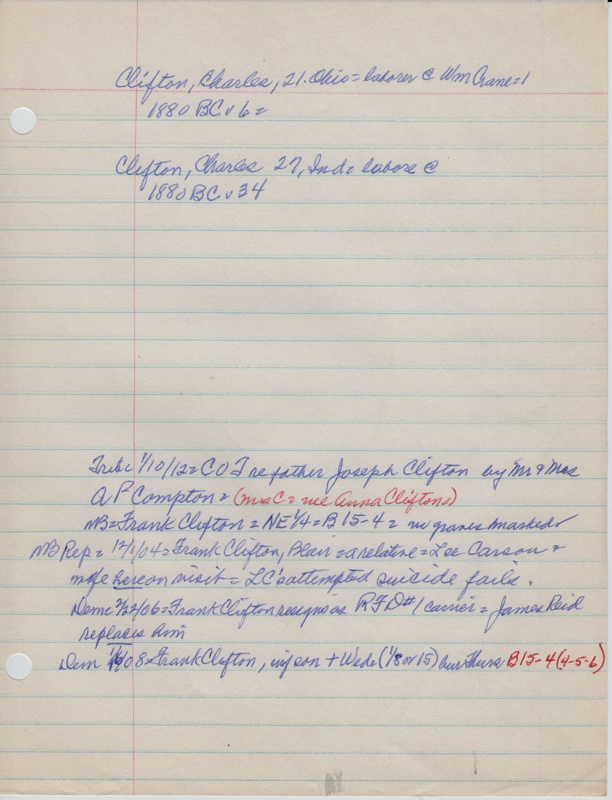 Clifton, Charles, 21. Ohio = laborer @ Wm Crane = 1
1880 BC v 6 =
Clifton, Charles 27, Ind = labore @
1880 BC v 34
Trib 1/10/12 = COT re father Joseph Clifton by Mr & Mrs
A P Compton = (Mrs C = nee Anna Clifton)
MB = Frank Clifton = NE 1/4 = B 15-4 = graves marked
MB Rep = 12/1/04 = Frank Clifton, Blair = a relative = Lee Carson &
wife here on visit = LC's attempted suicide fails.
Dem 2/22/06 = Frank Clifton resigns as RFD #1 carrier = James Reid
replaces him
Dem /08 = Frank Clifton, inf son + Weds (1/8 or 15) bur Thurs B15-4 (4-5-6)